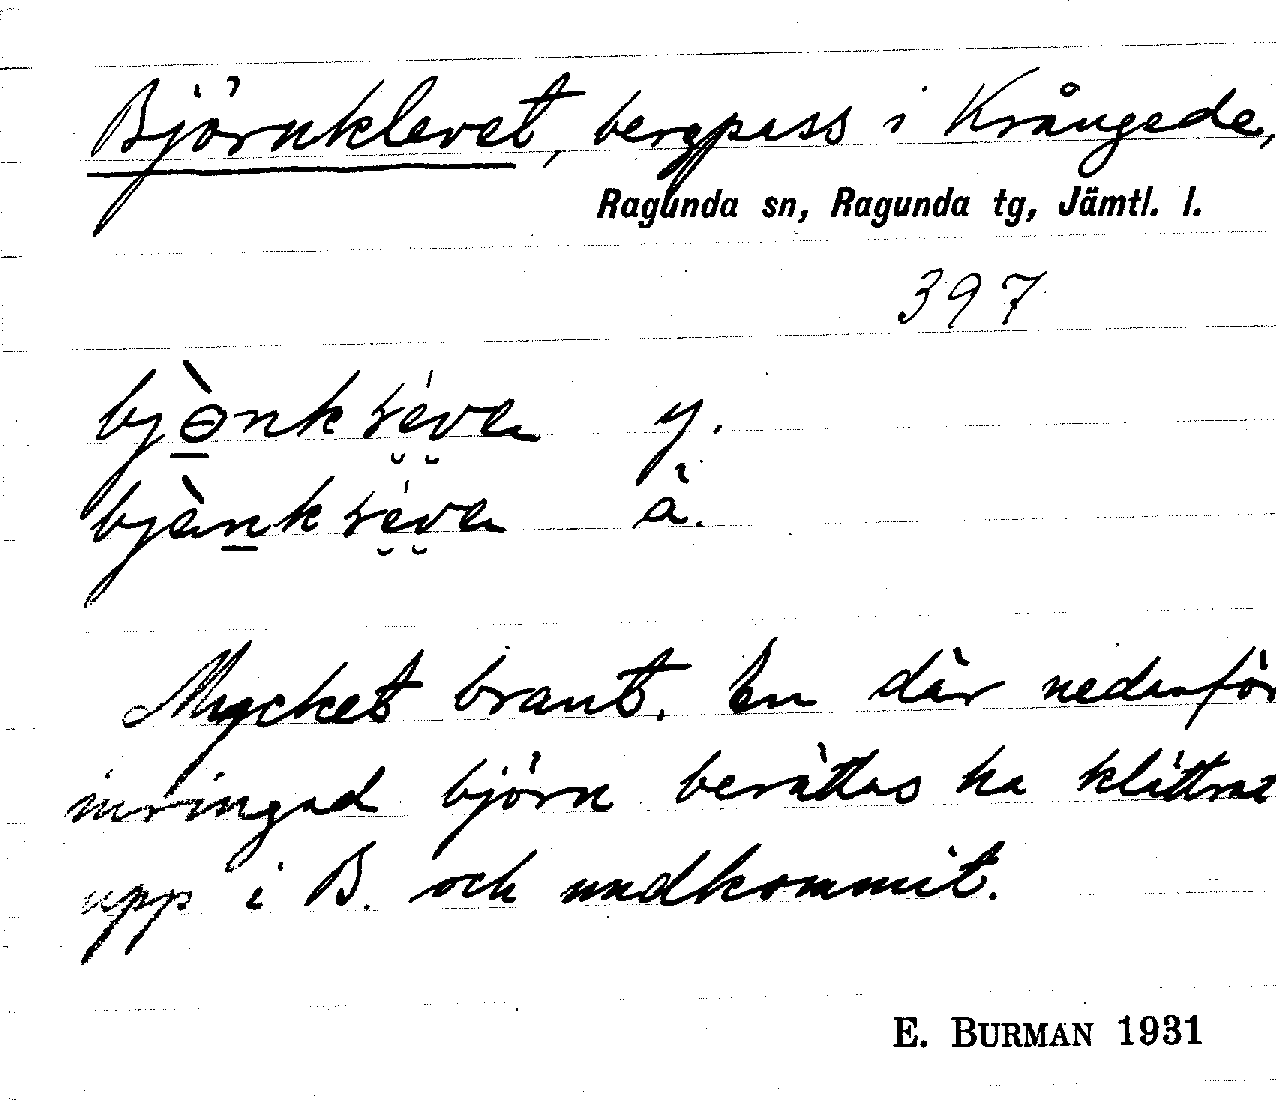 Björnklevet, bergpass i Krångede,
Ragunda sn, Ragunda tg, Jämtl. l.
397
y.
ä.
Mycket brant. En där nedanför
inringad björn berättas ha klättrat
upp i B. och undkommit.
E. BURMAN 1931